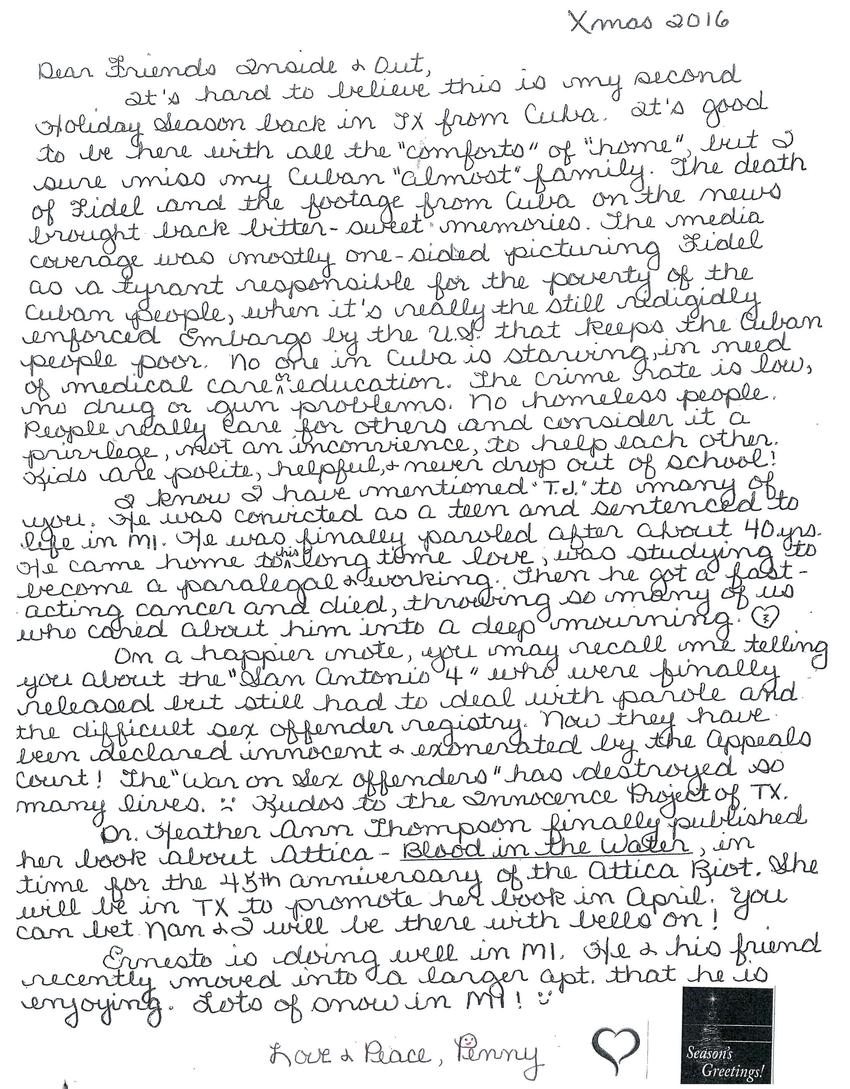 Xmas 2016
Dear Friends Inside & Out,
It's hard to believe this is my second
Holiday Season back in TX from Cuba. It's good
to be here with all the "comforts" of "home", but I
sure miss my Cuban "almost" family. The death
of Fidel and the footage from Cuba on the news
brought back bitter-sweet memories. The media
coverage was mostly one-sided picturing Fidel
as a tyrant responsible for the poverty of the
Cuban people, when it's really the still ridigidly
enforced Embargo by the U.S. that keeps the Cuban
people poor. No one in Cuba is starving, in need
of medical care or education. The crime rate is low,
no drug or gun problems. No homeless people.
People really care for others and consider it a
privilege, not an inconvience, to help each other.
Kids are polite, helpful, & never drop out of school!
I know I have mentioned "T.J." to many of
you. He was convicted as a teen and sentenced to
life in MI. He was finally paroled after about 40 yrs.
He came home to his long time love, was studying to
become a paralegal & working. Then he got a fast-
acting cancer and died, throwing so many of us
who cared about him into a deep mourning.
On a happier note, you may recall me telling
you about the "San Antonio 4" who were finally
released but still had to deal with parole and
the difficult sex offender registry. Now they have
been declared innocent & exonerated by the Appeals
Court! The "War on Sex Offenders" has destroyed so
many lives. Kudos to the Innocence Project of TX.
Dr. Heather Ann Thompson finally published
her book about Attica - Blood in the Water, in
time for the 45th anniversary of the Attica Riot. She
will be in TX to promote her book in April. You
can bet Nan & I will be there with bells on!
Ernesto is doing well in MI. He & his friend
recently moved into a larger apt. that he is
enjoying. Lots of snow in MI!
Love & Peace, Penny
Season's
Greetings!